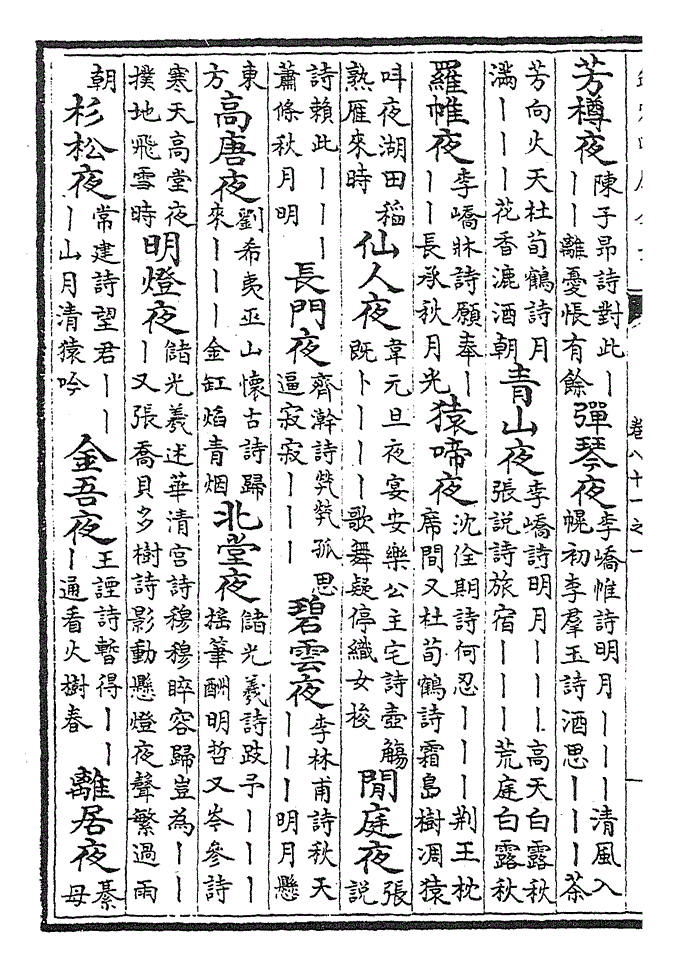 卷八十一之一
芳樽夜陳子昂詩對此丨丨丨離憂悵有餘彈琴夜李嶠帷詩明月丨丨丨清風入幌初李羣玉詩酒思丨丨丨茶
芳向火天杜荀鶴詩月滿丨丨丨花香漉酒朝青山夜李嶠詩明月丨丨丨高天白露秋張説詩旅宿丨丨丨荒庭白露秋
羅帷夜李嶠牀詩願奉丨丨丨長承秋月光猿啼夜沈佺期詩何忍丨丨丨荆王枕席間又杜荀鶴詩霜島樹凋猿
叫夜湖田稻熟雁來時仙人夜韋元旦夜宴安樂公主宅詩壺觴既卜丨丨丨歌舞疑停織女梭閒庭夜張説
詩賴此丨丨丨蕭條秋月明長門夜齊澣詩煢煢孤思逼寂寂丨丨丨碧雲夜李林甫詩秋天丨丨丨明月懸
東方高唐夜劉希夷巫山懷古詩歸來丨丨丨金缸焰青烟北堂夜儲光羲詩跂予丨丨丨摇筆酬明哲又岑參詩
寒天高堂夜撲地飛雪時明燈夜儲光羲述華清宫詩穆穆睟容歸豈為丨丨丨又張喬貝多樹詩影動懸燈夜聲繁過雨
朝杉松夜常建詩望君丨丨丨山月清猿吟金吾夜王諲詩暫得丨丨丨通看火樹春離居夜綦母